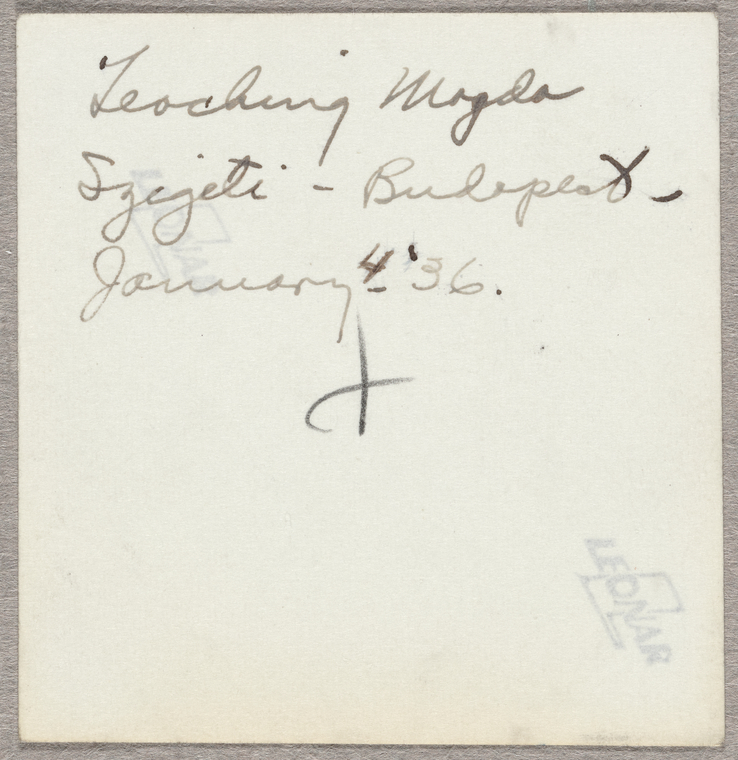 Teaching Magda
Szigeti - Budapest -
January 4 '36.
LEONAR
LEONAR